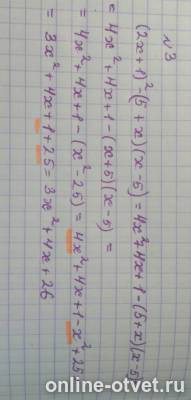 №3
(2x+1)²-(5+x)(x-5)=4x²+4x+1-(5+x)(x-5)
=4x²+4x+1-(x+5)(x-5)=
=4x²+4x+1-(x²-25)=4x²+4x+1-x²+25
=3x²+4x+1+25=3x²+4x+26
online-otvet.ru